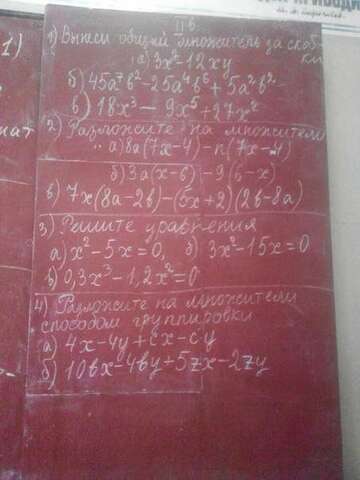 1)
мат
II в
1) Вынеси общий множитель за скоб-
ки
а) 3x²-12xy
б) 45a⁷b²-25a⁴b⁶+5a²b²
в) 18x³-9x⁵+27x²
2) Разложите на множители
а) 8a(7x-4)-n(7x-4)
б) 3a(x-6)-9(6-x)
в) 7x(8a-2b)-(5x+2)(2b-8a)
3) Решите уравнения
а) x²-5x=0, б) 3x²-15x=0
в) 0,3x³-1,2x²=0
4) Разложите на множители
способом группировки
а) 4x-4y+cx-cy
б) 10bx-4by+5zx-2zy